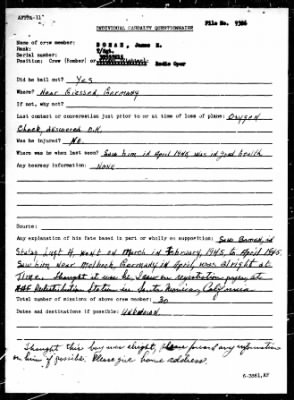 AFPPA-11
File No. 7386
INDIVIDUAL CASUALTY QUESTIONNAIRE
Name of crew member: BOMAN, James H.
Rank: T/Sgt.
Serial number:
Position: Crew (Bomber) or Radio Oper
Did he bail out? Yes
Where? Near Giessed, Germany
If not, why not?
Last contact or conversation just prior to or at time of loss of plane: Oxygen
Check, answered O.K.
Was he injured? No.
Where was he when last seen? Saw him in April 1945, was in good health
Any hearsay information: NONE
Source:
Any explanation of his fate based in part or wholly on supposition: Saw Boman, at
Stalag Luft 4, went on March in February, 1945 to April 1945.
Saw him near Germany in April, was alright at
Time. Thought I saw his name on registration pages, at
Redistribution Station in Santa Monica, California
Total number of missions of above crew member: 30
Dates and destinations if possible: Unknown
I thought this boy was alright, please forward any information
on him if possible. Please give home address.
6-3861,AF